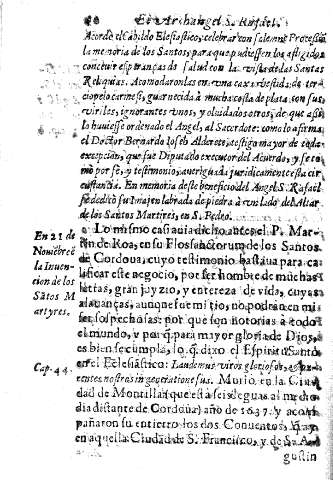 El Archangel S. Rafael.
Acordó el Cabildo Eclesiastico, celebrar con solemne Procession
la memoria de los Santos; para que pudiessen los afligidos
concevir esperanças de salud con la vista de las Santas
Reliquias. Acomodaronlas en vna caxa vestida de ter
ciopelo carmesi, guarnecida à mucha costa de plata con sus
viriles, ignorantes vnos, y olvidados otros, de que assi
lo huviesse ordenado el Angel, al Sacerdote: como lo afirma
el Doctor Bernardo Ioseph Alderete, testigo mayor de toda
excepcion, que fue Diputado executor del Acuerdo, y se to
mò por fe, y testimonio, averiguada juridicamente esta cir
custancia. En memoria deste beneficio del Angel S. Rafael
se dedicò su Imajen labrada de piedra à un lado del Altar
de los Santos Martires, en S. Pedro.
En 21 de
Noviẽbre ẽ
la Inuen-
cion de los
Sãtos M
artyres.
Lo mismo casi avia dicho antes el P. Mar-
tin de Roa, en su Flos Sanctorum de los Santos
de Cordoua, cuyo testimonio bastàua para ca
lificar este negocio, por ser hombre de muchas
letras, gran juyzio, y entereza de vida, cuyas
alabanças, aunque fue mi tio, no podràn en mi
ser sospechosas: por que son notorias à todo
el mundo, y por q̃ para mayor gloria de Dios,
es bien se cumpla, lo q̃ dixo el Espiritu Santo
Cap. 44.
en el Eclesiàstico: Laudemus viros gloriosos, & pa-
rentes nostros in generatione sua. Murio en la Ciu
dad de Montilla (que està seis leguas al medio
dia distante de Cordoua) año de 1637. y acom
pañaron su entierro los dos Conuentos, q̃ ay
en aquella Ciudad de S. Francisco, y de S. A
gustin